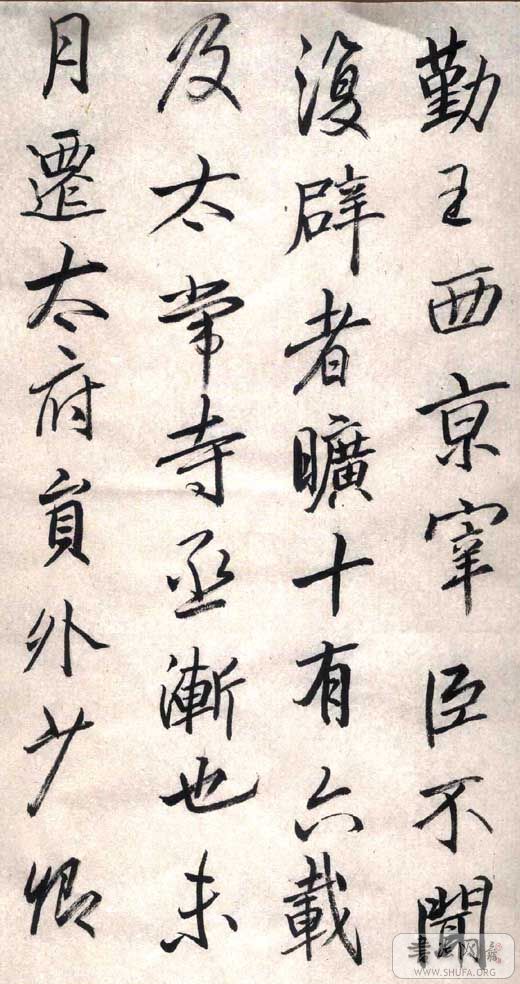 勤王西京宰臣不聞
復辟者曠十有六載
及太常寺丞漸也未
月遷太府貟外少卿
WWW.SHUFA.ORG